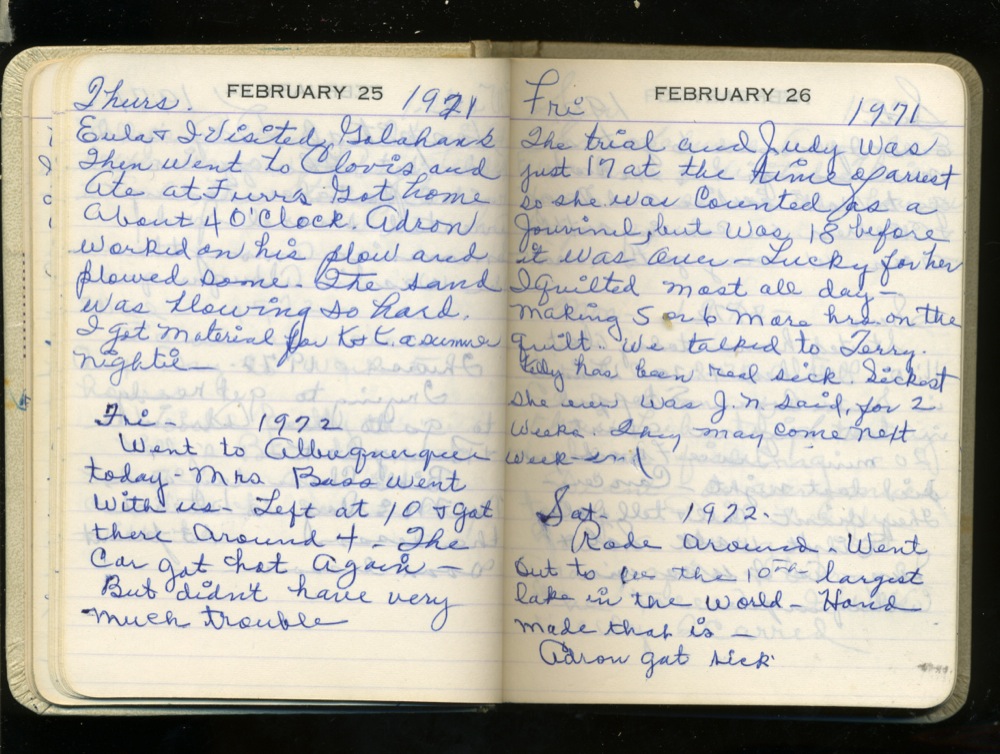 Thurs. FEBRUARY 25 1971
Eula & I Visited Galahans
Then went to Clovis and
Ate at Furrs Got home
About 4 O'Clock. Adron
worked on his plow and
plowed some. The sand
was blowing so hard.
I got Material for K & K. a summer
nightie—
Fri— 1972
Went to Albuquerque
today— Mrs Bass went
with us— Left at 10 & got
there Around 4— The
Car got hot Again—
But didn't have very
much trouble
Fri FEBRUARY 26 1971
The trial and Judy was
just 17 at the time of arrest
so she was Counted as a
Jouvinel, but was 18 before
it was over— Lucky for her
I Quilted most all day—
making 5 or 6 more hrs. on the
quilt. We talked to Terry.
has been real sick. Sickest
she ever was J.N said, for 2
weeks. They may come next
week-end
Sat— 1972.
Rode around. Went
out to see the 10th largest
lake in the world— Hand
made that is—
Adron got sick